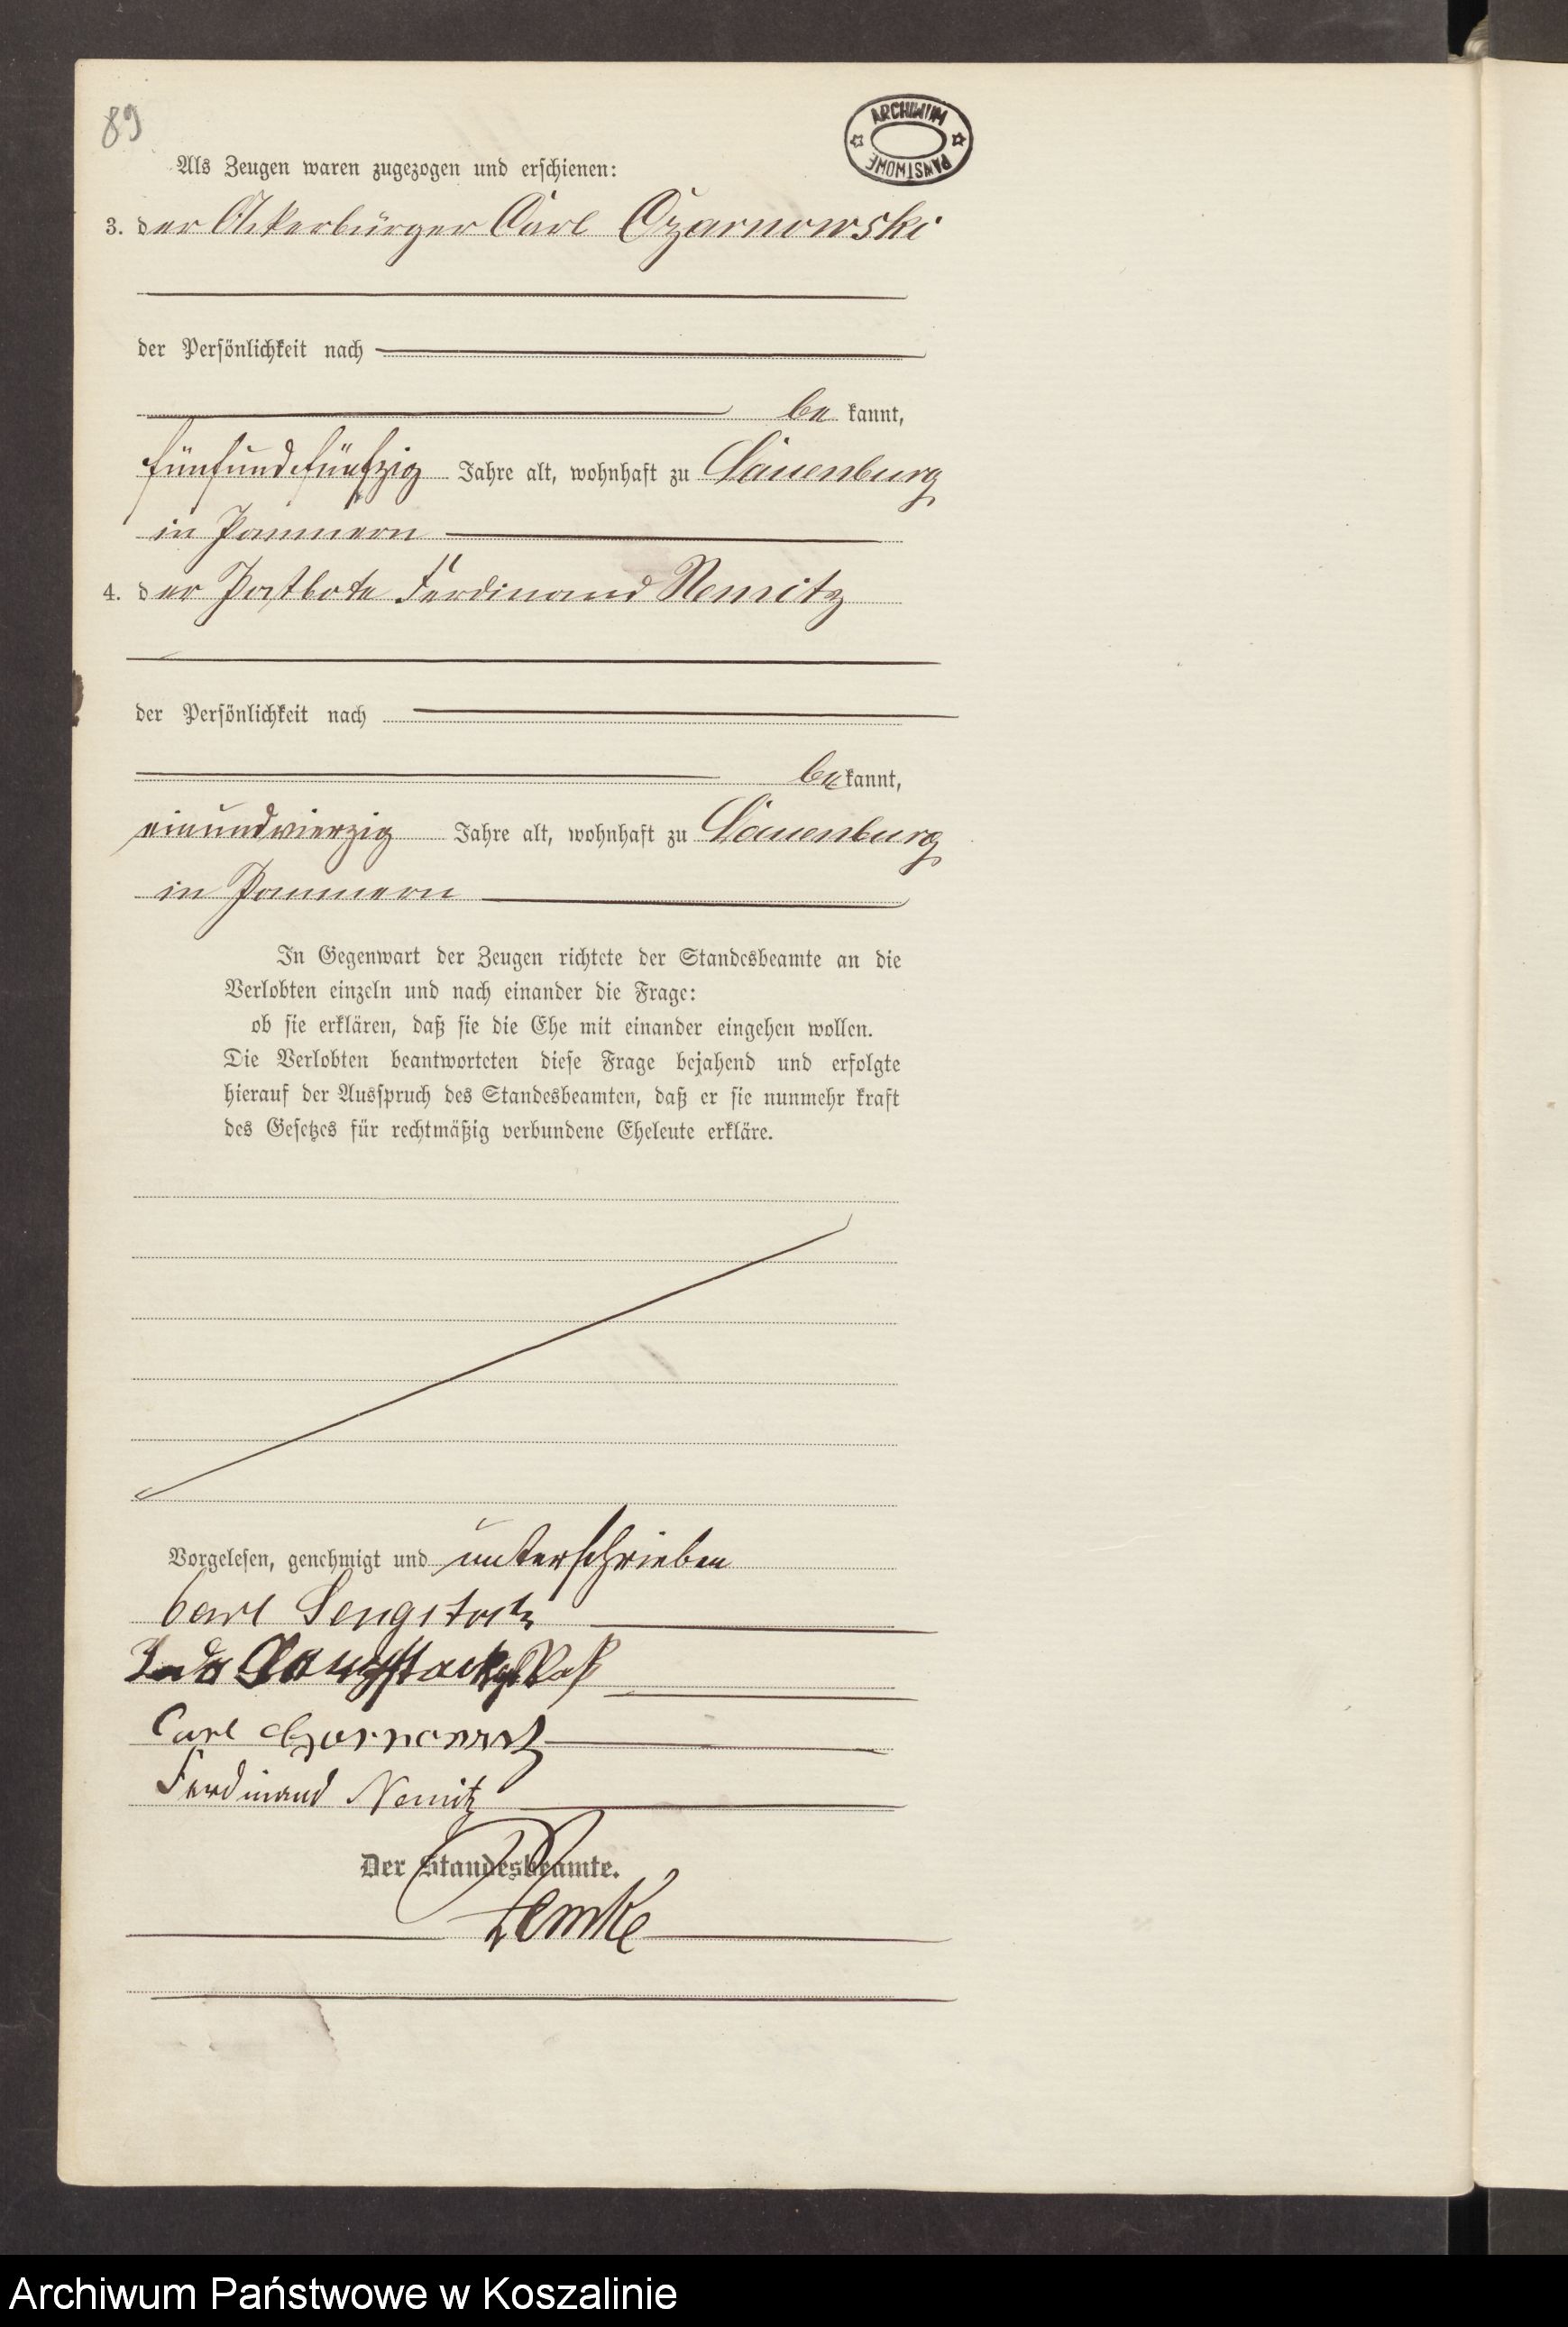 89
ARCHIWUM PAŃSTWOWE
Als Zeugen waren zugezogen und erschienen:
3. der Ackerbürger Carl Czarnowski
der Persönlichkeit nach
be kannt,
fünfundfünfzig Jahre alt, wohnhaft zu Lauenburg
in Pommern
4. der Postbote Ferdinand Nemitz
der Persönlichkeit nach
be kannt,
einundvierzig Jahre alt, wohnhaft zu Lauenburg
in Pommern
In Gegenwart der Zeugen richtete der Standesbeamte an die
Verlobten einzeln und nach einander die Frage:
ob sie erklären, daß sie die Ehe mit einander eingehen wollen.
Die Verlobten beantworteten diese Frage bejahend und erfolgte
hierauf der Ausspruch des Standesbeamten, daß er sie nunmehr kraft
des Gesetzes für rechtmäßig verbundene Eheleute erkläre.
Vorgelesen, genehmigt und unterschrieben
Carl Sengstock
Sengstock
Carl
Ferdinand Nemitz
Der Standesbeamte.
Zemke
Archiwum Państwowe w Koszalinie